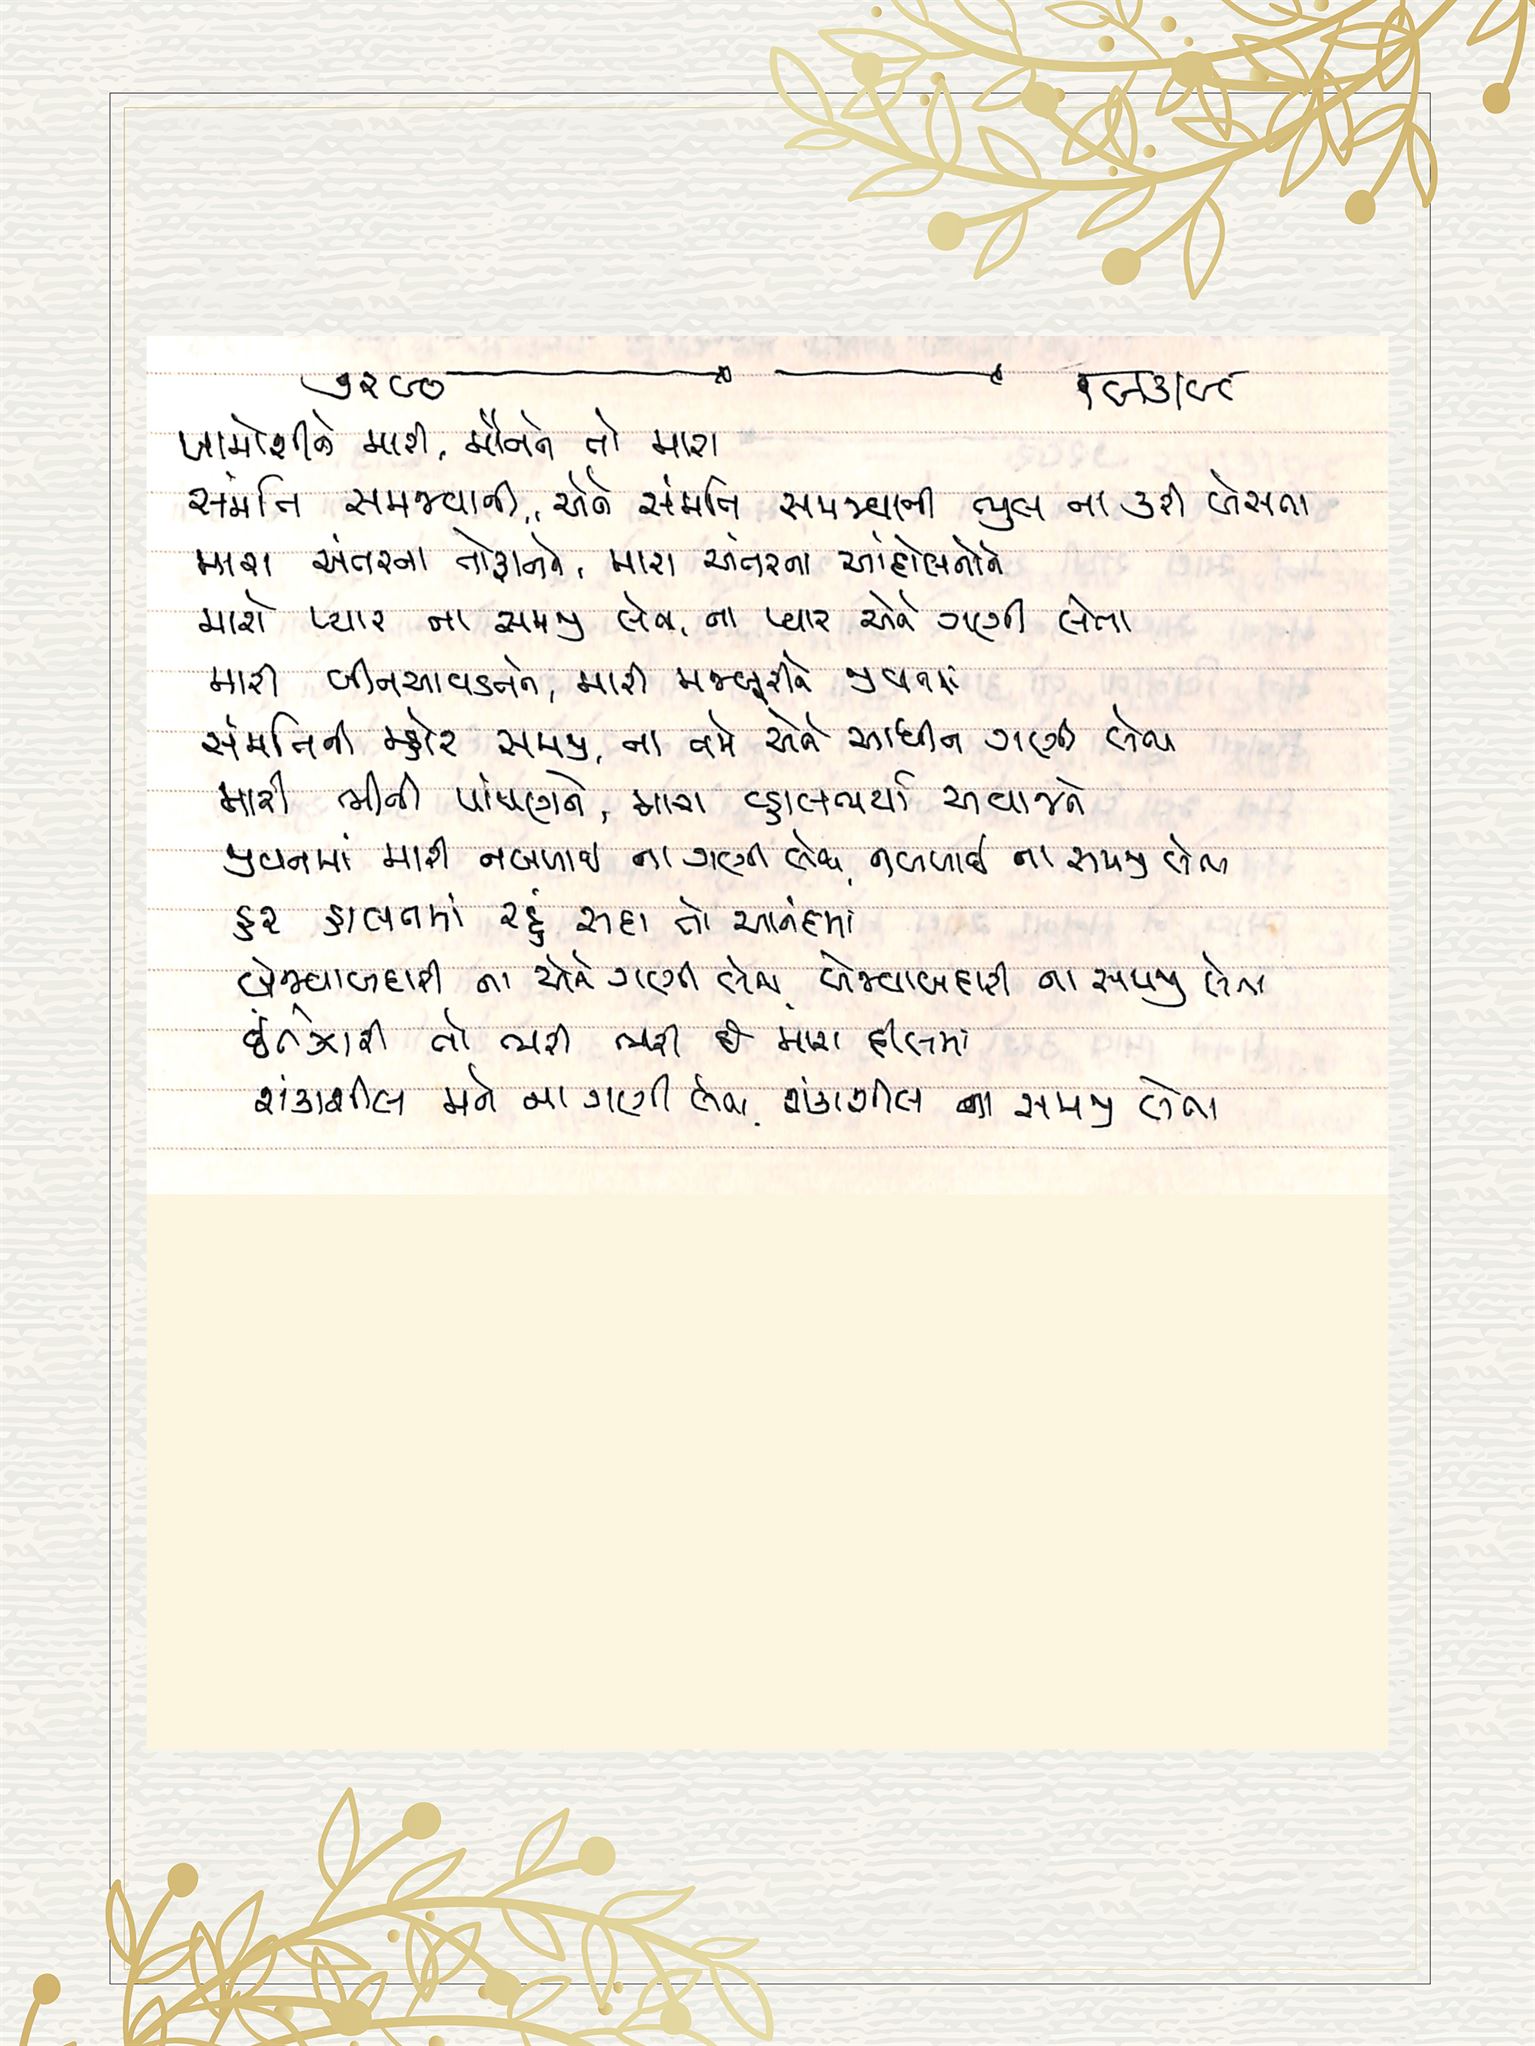 ખામોશીને મારી, મૌનને તો મારા
સંમતિ સમજવાની,, એને સંમતિ સમજવાની ભુલ ના કરી બેસતા
મારા અંતરના તોફાનને, મારા અંતરના આંદોલનોને
મારો પ્યાર ના સમજી લેતા, ના પ્યાર એને ગણી લેતા
મારી બીનઆવડતને, મારી મજબૂરીને જીવનમાં
સંમતિની મ્હોર સમજી, ના તમે એને આધીન ગણી લેતા
મારી ભીની પાંપણને, મારા વ્હાલભર્યા અવાજને
જીવનમાં મારી નબળાઈ ના ગણી લેતા, નબળાઈ ના સમજી લેતા
હર હાલતમાં રહું સદા તો આનંદમાં
બેજવાબદારી ના એને ગણી લેતા, બેજવાબદારી ના સમજી લેતા
ઈંતેઝારી તો ભરી ભરી છે મારા દીલમાં
શંકાશીલ મને ના ગણી લેતા, શંકાશીલ ના સમજી લેતા